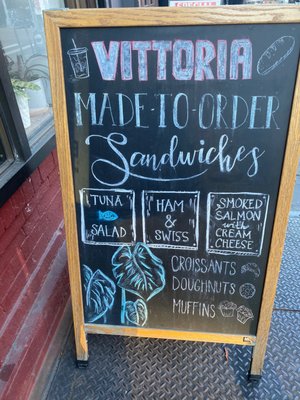 VITTORIA
MADE-TO-ORDER
Sandwiches
TUNA
SALAD
HAM
&
SWISS
SMOKED
SALMON
with
CREAM
CHEESE
CROISSANTS
DOUGHNUTS
MUFFINS